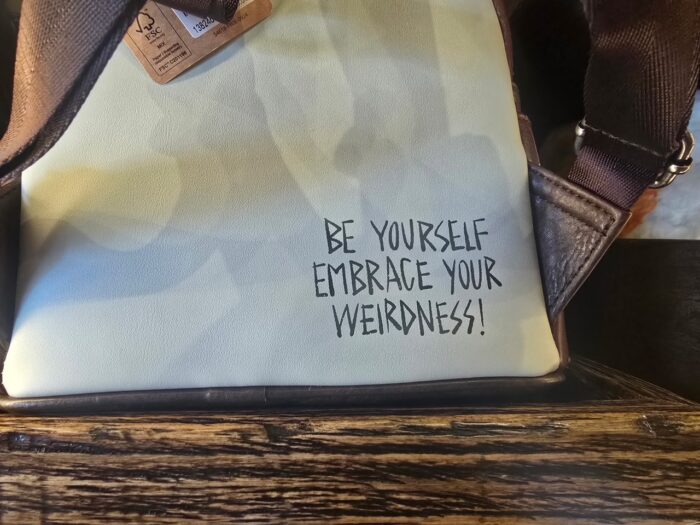 FSC
MIX
BE YOURSELF
EMBRACE YOUR
WEIRDNESS!